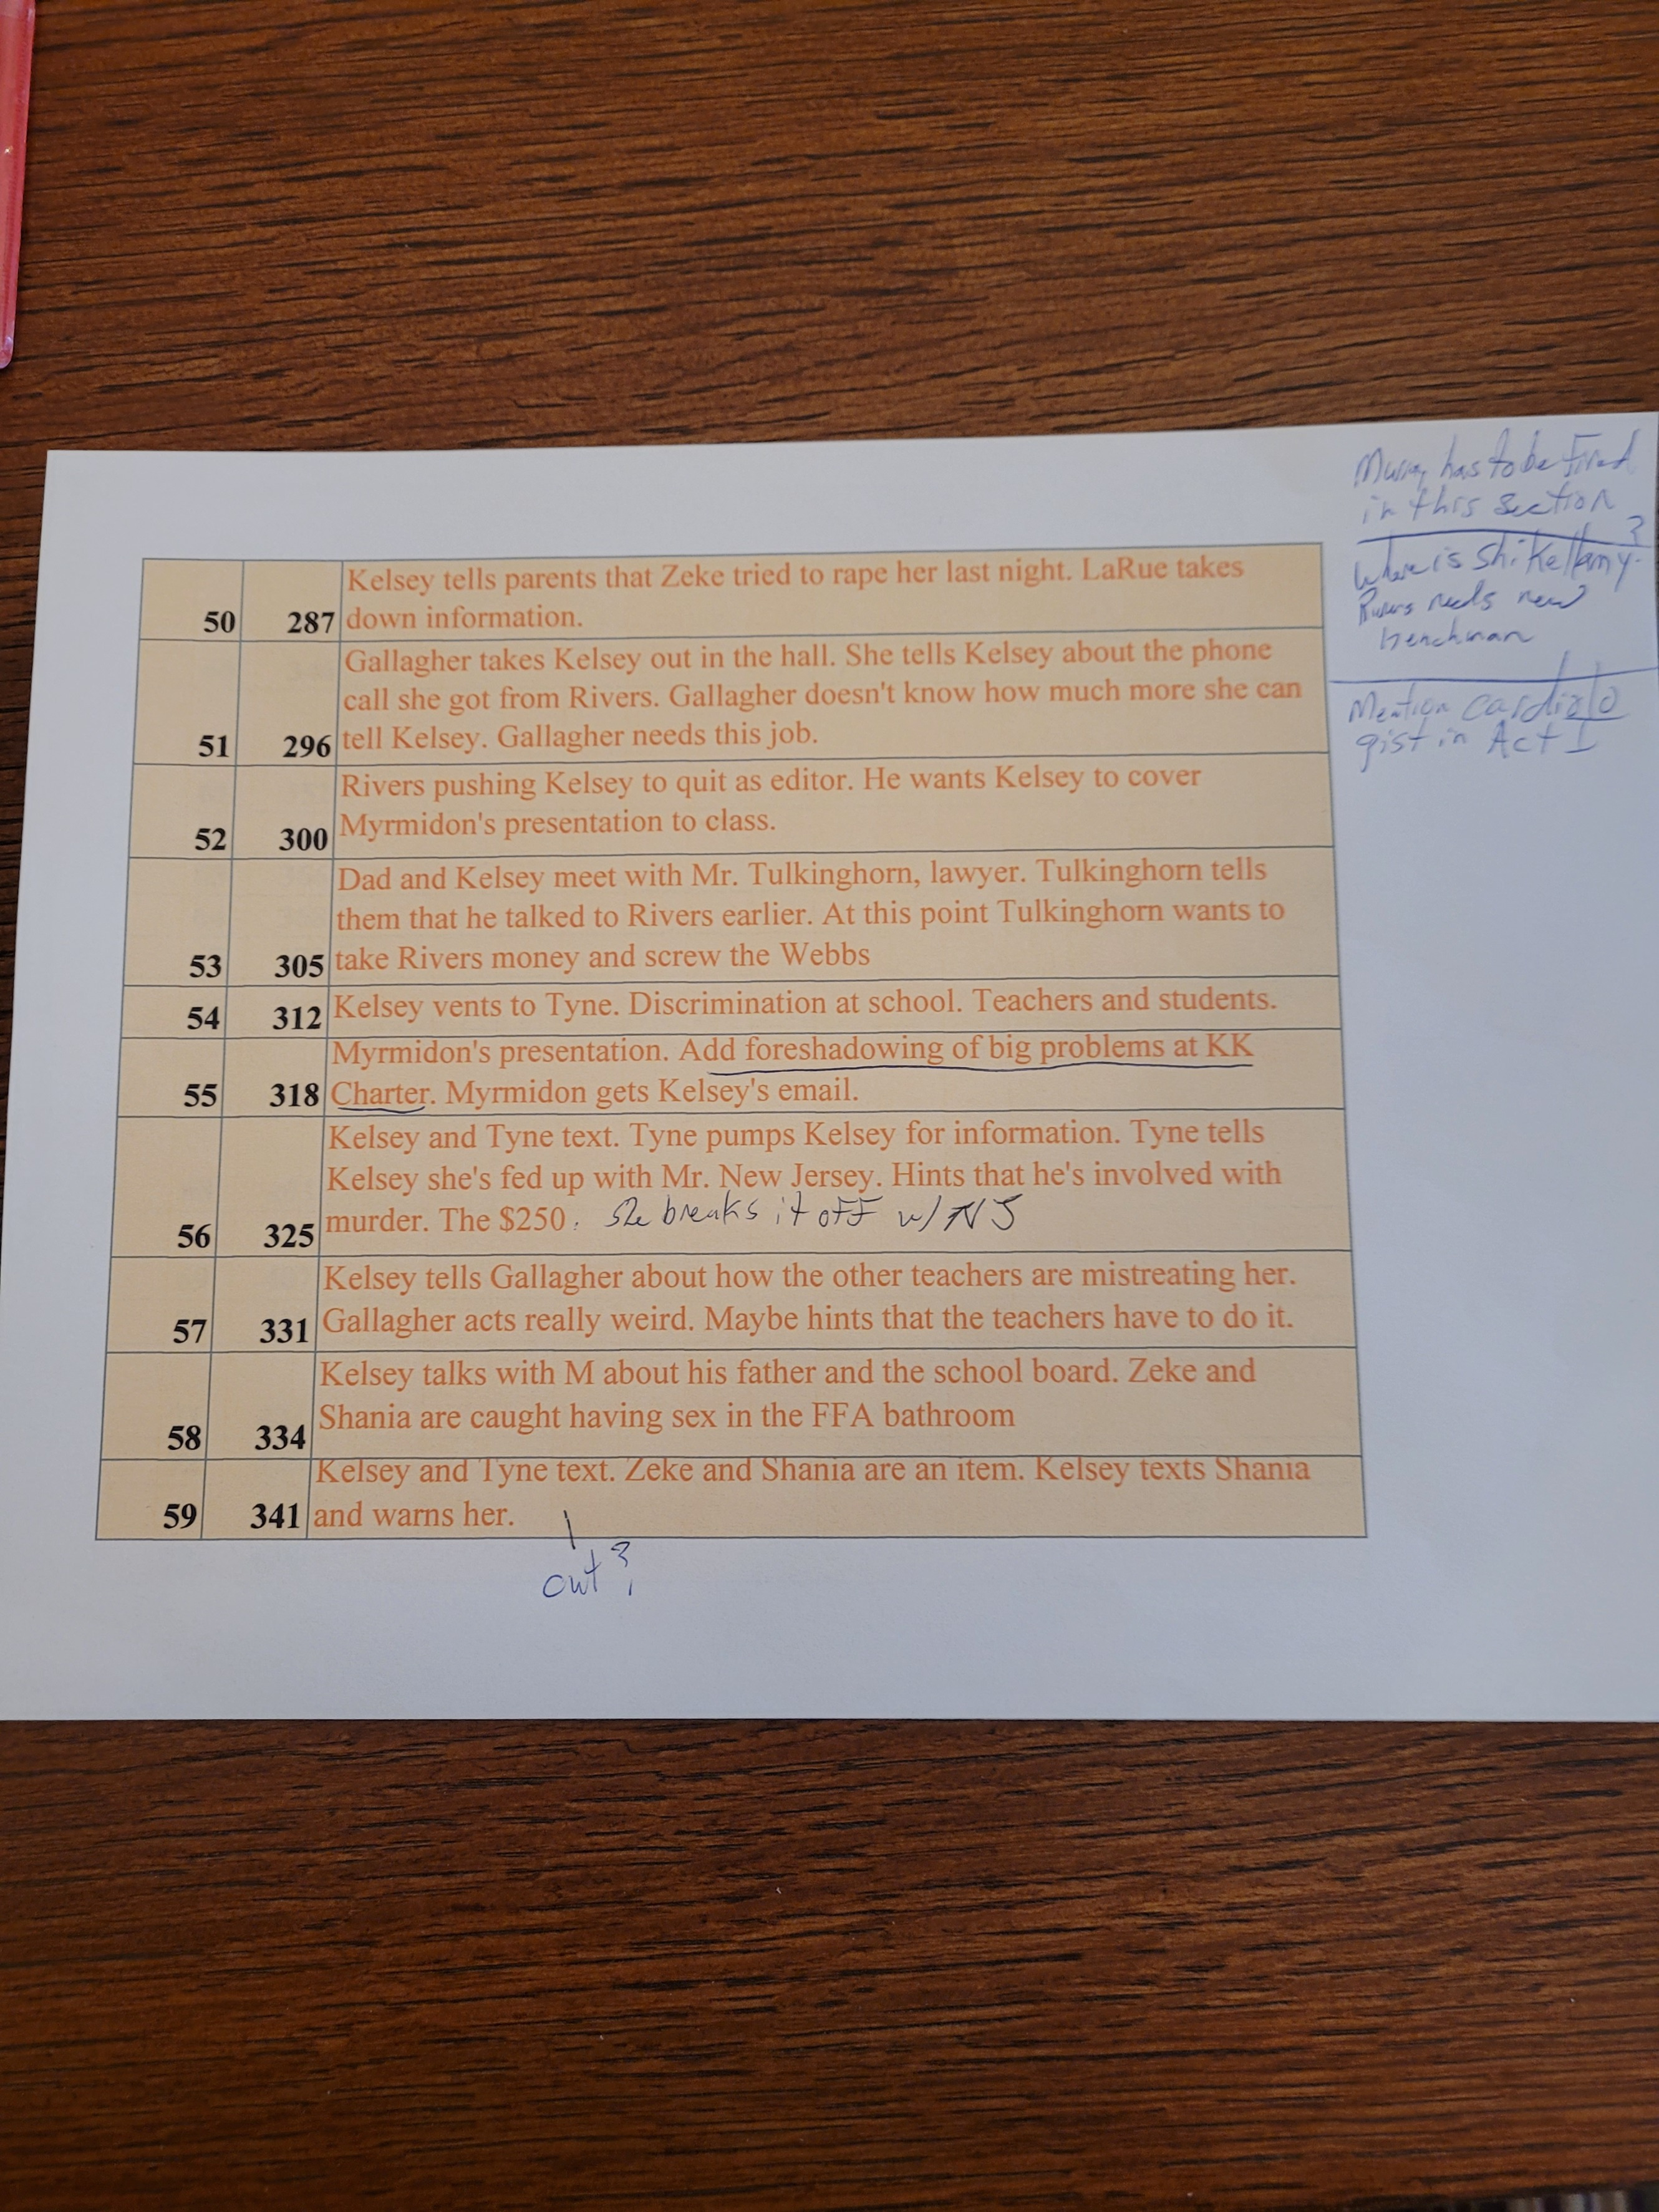 Murray has to be fired
in this section
Where is Shikellamy?
Rivers needs new
henchman
Mention cardiolo
gist in Act I
50 287 Kelsey tells parents that Zeke tried to rape her last night. LaRue takes
down information.
51 296 Gallagher takes Kelsey out in the hall. She tells Kelsey about the phone
call she got from Rivers. Gallagher doesn't know how much more she can
tell Kelsey. Gallagher needs this job.
52 300 Rivers pushing Kelsey to quit as editor. He wants Kelsey to cover
Myrmidon's presentation to class.
53 305 Dad and Kelsey meet with Mr. Tulkinghorn, lawyer. Tulkinghorn tells
them that he talked to Rivers earlier. At this point Tulkinghorn wants to
take Rivers money and screw the Webbs
54 312 Kelsey vents to Tyne. Discrimination at school. Teachers and students.
55 318 Myrmidon's presentation. Add foreshadowing of big problems at KK
Charter. Myrmidon gets Kelsey's email.
56 325 Kelsey and Tyne text. Tyne pumps Kelsey for information. Tyne tells
Kelsey she's fed up with Mr. New Jersey. Hints that he's involved with
murder. The $250. She breaks it off w/ NJ
57 331 Kelsey tells Gallagher about how the other teachers are mistreating her.
Gallagher acts really weird. Maybe hints that the teachers have to do it.
58 334 Kelsey talks with M about his father and the school board. Zeke and
Shania are caught having sex in the FFA bathroom
59 341 Kelsey and Tyne text. Zeke and Shania are an item. Kelsey texts Shania
and warns her.
cut?